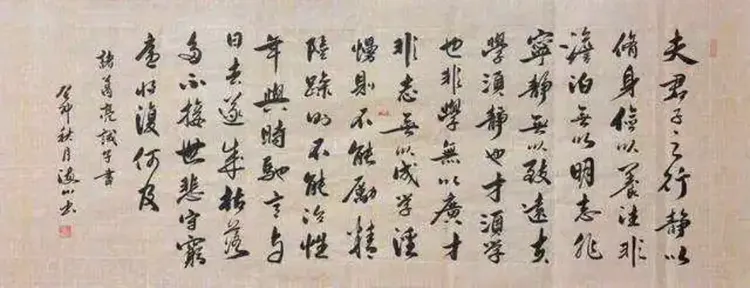 夫君子之行静以
脩身儉以養德非
澹泊無以明志非
寧静無以致遠夫
學須静也才須學
也非學無以廣才
非志無以成學淫
慢則不能勵精
險躁则不能治性
年與時馳意与
日去遂成枯落
多不接世悲守窮
廬将復何及
諸葛亮誡子書
癸卯秋月